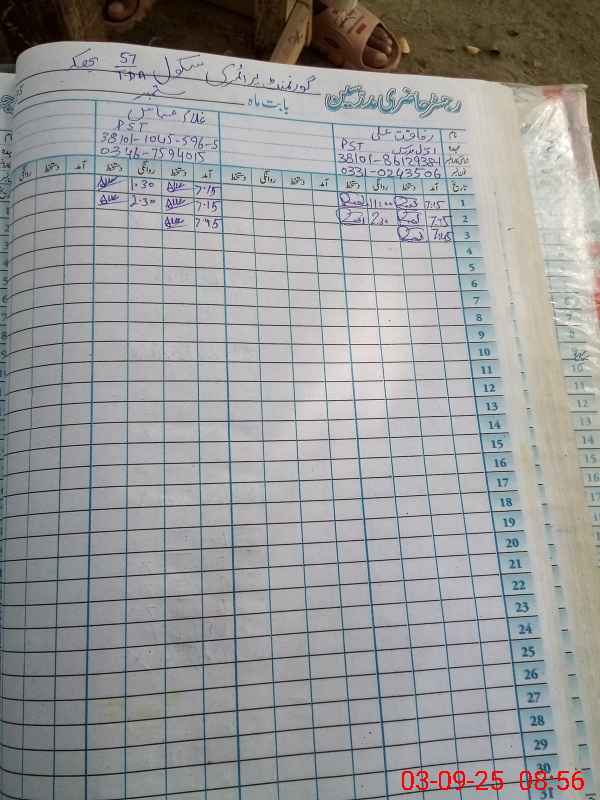 گورنمنٹ پرائمری سکول 57 TDA بھکر
رجسٹر حاضری مدرسین بابت ماہ ستمبر
نام رفاقت علی
PST
38101-8612938-1
0331-0243506
غلام عباس
PST
38101-1045-596-5
0346-7594015
تاریخ آمد دستخط روانگی دستخط آمد دستخط روانگی دستخط آمد دستخط روانگی دستخط آمد دستخط روانگی
1 7:15 11:00 7:15 1:30
2 7:15 7:15 2:30
3 7:45 7:45
4
5
6
7
8
9
10
11
12
13
14
15
16
17
18
19
20
21
22
23
24
25
26
27
28
29
30
31
03-09-25 08:56